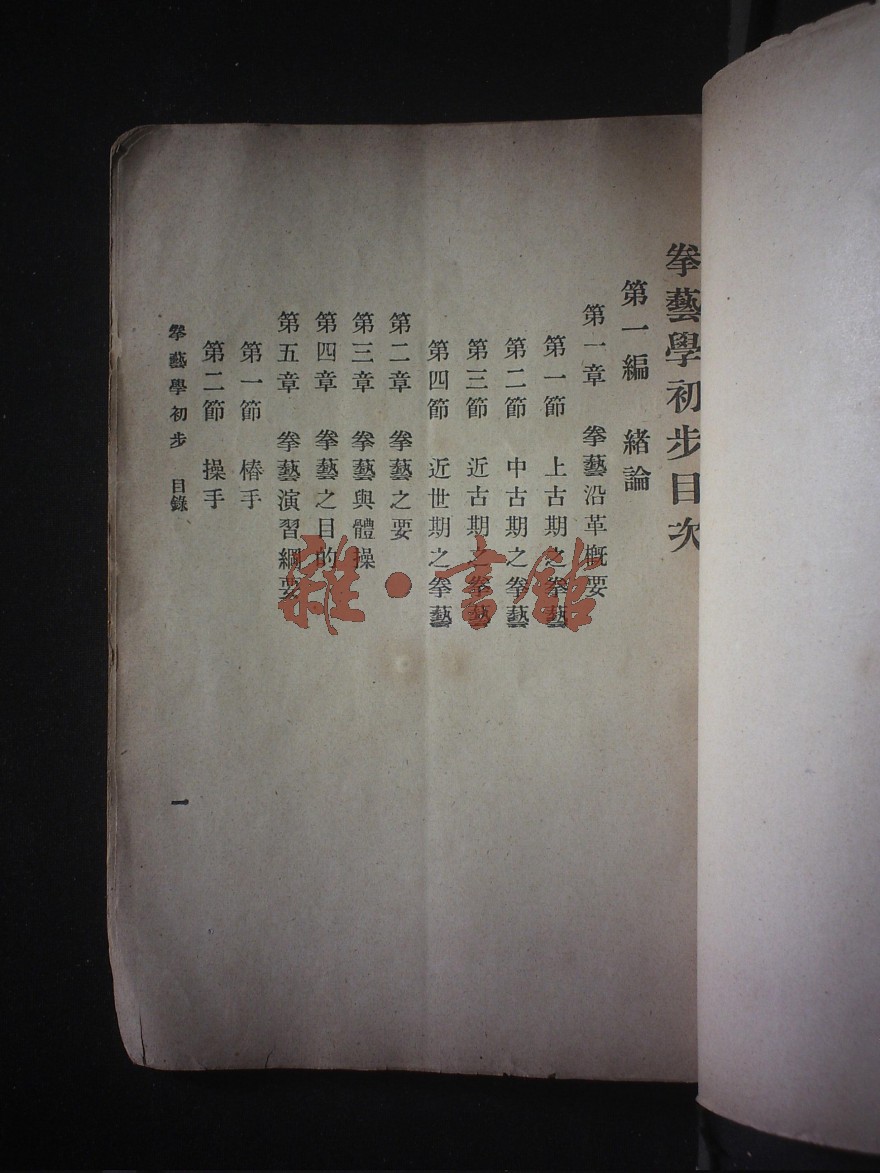 拳藝學初步目次
第一編 緒論
第一章 拳藝沿革概要
第一節 上古期之拳藝
第二節 中古期之拳藝
第三節 近古期之拳藝
第四節 近世期之拳藝
第二章 拳藝之要
第三章 拳藝與體操
第四章 拳藝之目的
第五章 拳藝演習綱要
第一節 樁手
第二節 操手
拳藝學初步 目錄
一
雜·書館